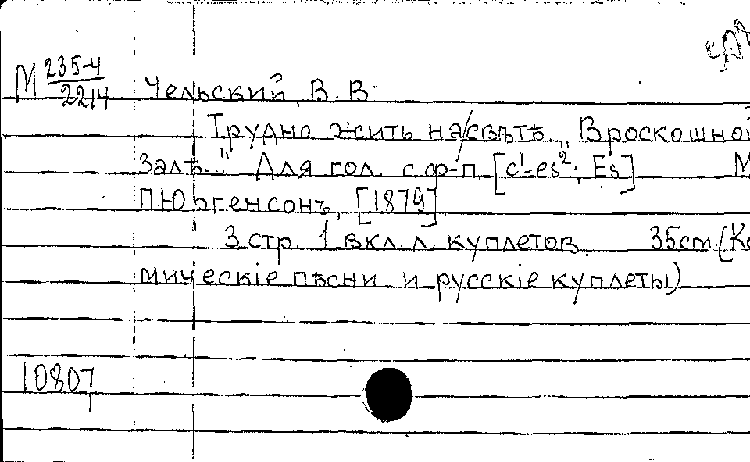 М 235-4
2214
Чельский, В. В.
Трудно жить на свѣтѣ. „В роскошной
залѣ." Для гол. с ф-п. [c¹-es²; Es] М
П. Юргенсонъ, [1879]
3 стр. 1 вкл. л. куплетов. 35cm. (Ко
мическіе пѣсни и русскіе куплеты)
10807